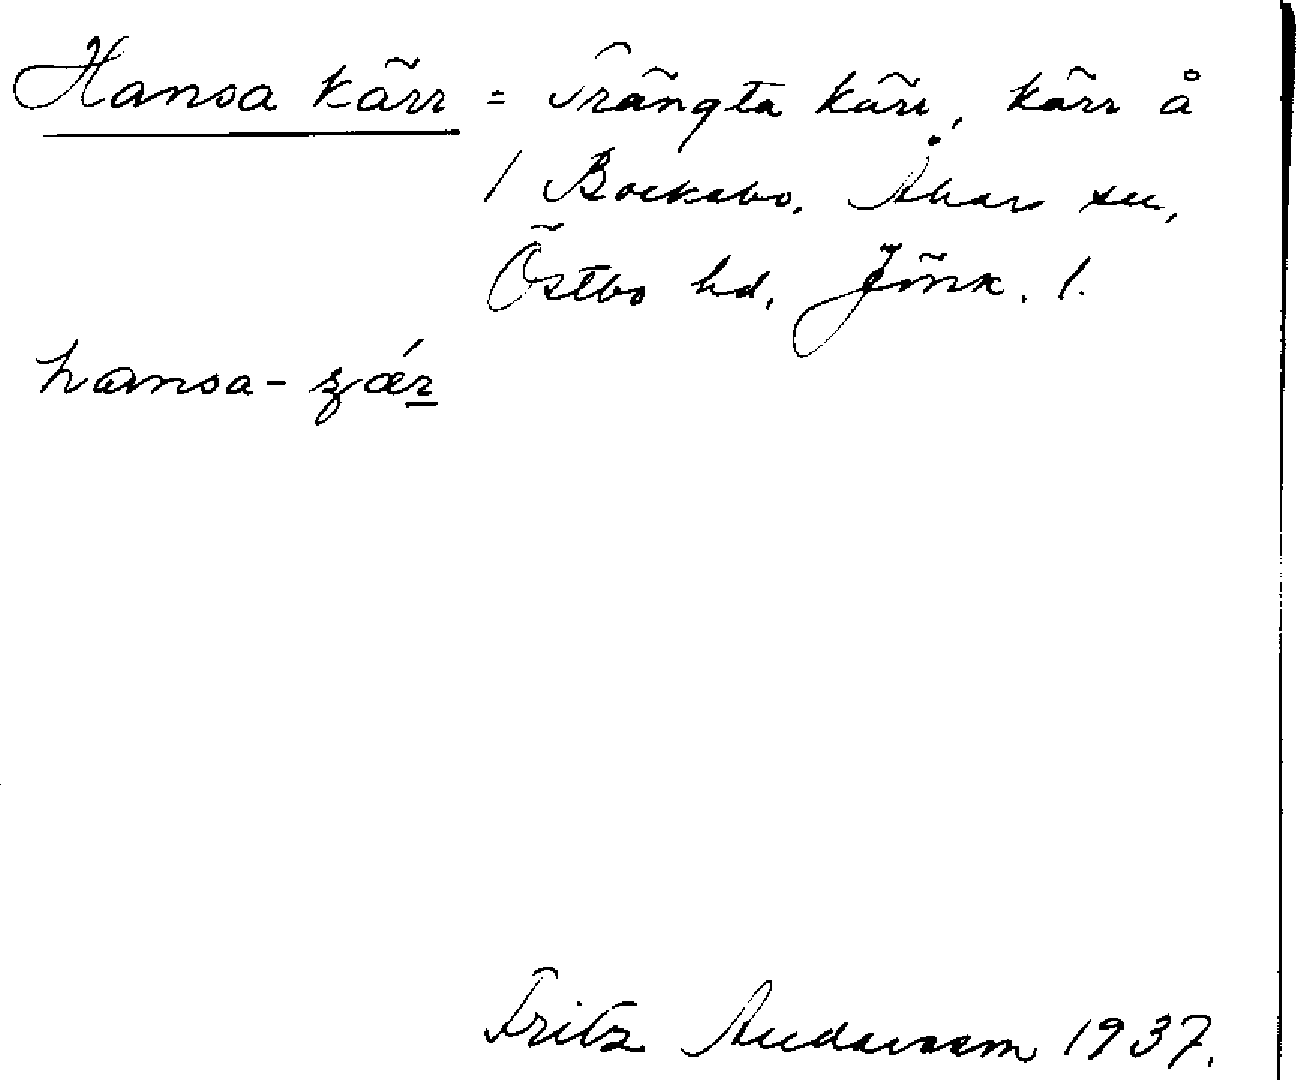 Hansa kärr = Trängta kärr, kärr å
1 Bockabo, Åkar sn,
Östbo hd, Jönk. l.
hansa-ɕǽr
Fritz Andersson 1937.